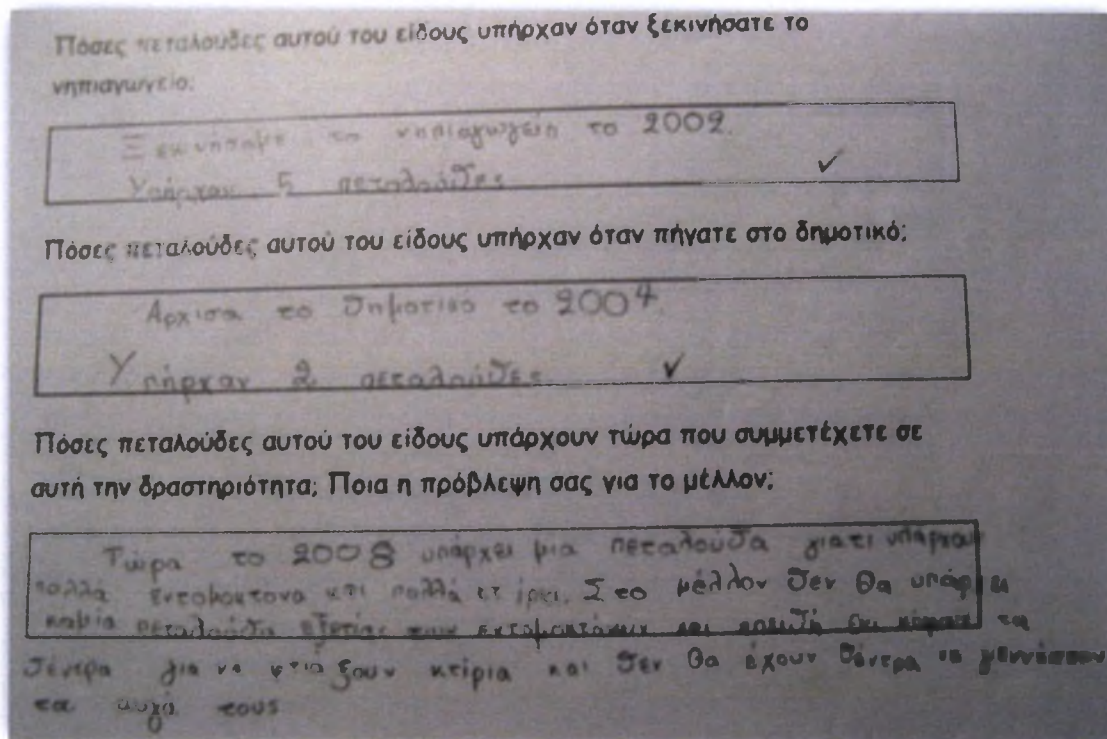 Πόσες πεταλούδες αυτού του είδους υπήρχαν όταν ξεκινήσατε το
νηπιαγωγείο;
Ξεκινήσαμε το νηπιαγωγείο το 2002.
Υπήρχαν 5 πεταλούδες ✓
Πόσες πεταλούδες αυτού του είδους υπήρχαν όταν πήγατε στο δημοτικό;
Αρχισα το δημοτικό το 2004.
Υπήρχαν 2 πεταλούδες ✓
Πόσες πεταλούδες αυτού του είδους υπάρχουν τώρα που συμμετέχετε σε
αυτή την δραστηριότητα; Ποια η πρόβλεψη σας για το μέλλον;
Τώρα το 2008 υπάρχει μια πεταλούδα γιατί υπάρχουν
πολλά εντομοκτονα και πολλά κτίρια. Στο μέλλον δεν θα υπάρχει
καμία πεταλούδα εξετίας των εντομοκτόνων και επειδή θα κόψουν τα
δέντρα για να φτιαξουν κτίρια και δεν θα έχουν δέντρα να γεννήσουν
τα αυγά τους